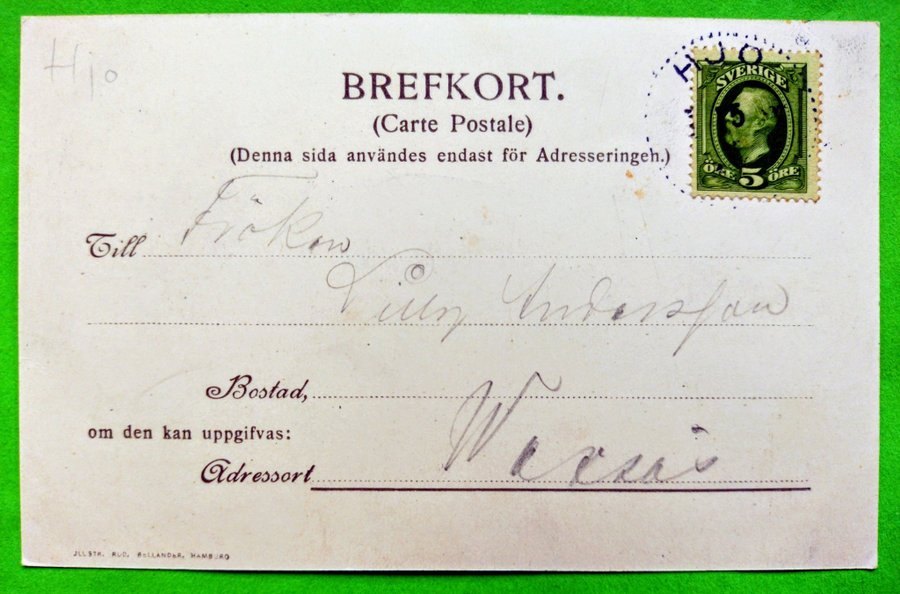 Hjo
HJO
SVERIGE
5
ÖRE 5 ÖRE
BREFKORT.
(Carte Postale)
(Denna sida användes endast för Adresseringen.)
Till Fröken
Lilly Andersson
Bostad,
om den kan uppgifvas:
Adressort
JLLSTR. RUD. BELLANDER, HAMBURG